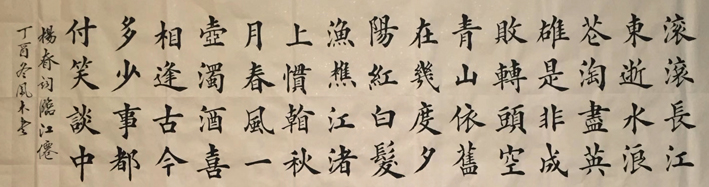 滚滚長江
東逝水浪
苍淘盡英
雄是非成
敗轉頭空
青山依舊
在幾度夕
陽紅白髮
漁樵江渚
上慣翰秋
月春風一
壺濁酒喜
相逢古今
多少事都
付笑談中
楊春词臨江僊
丁酉冬風木書